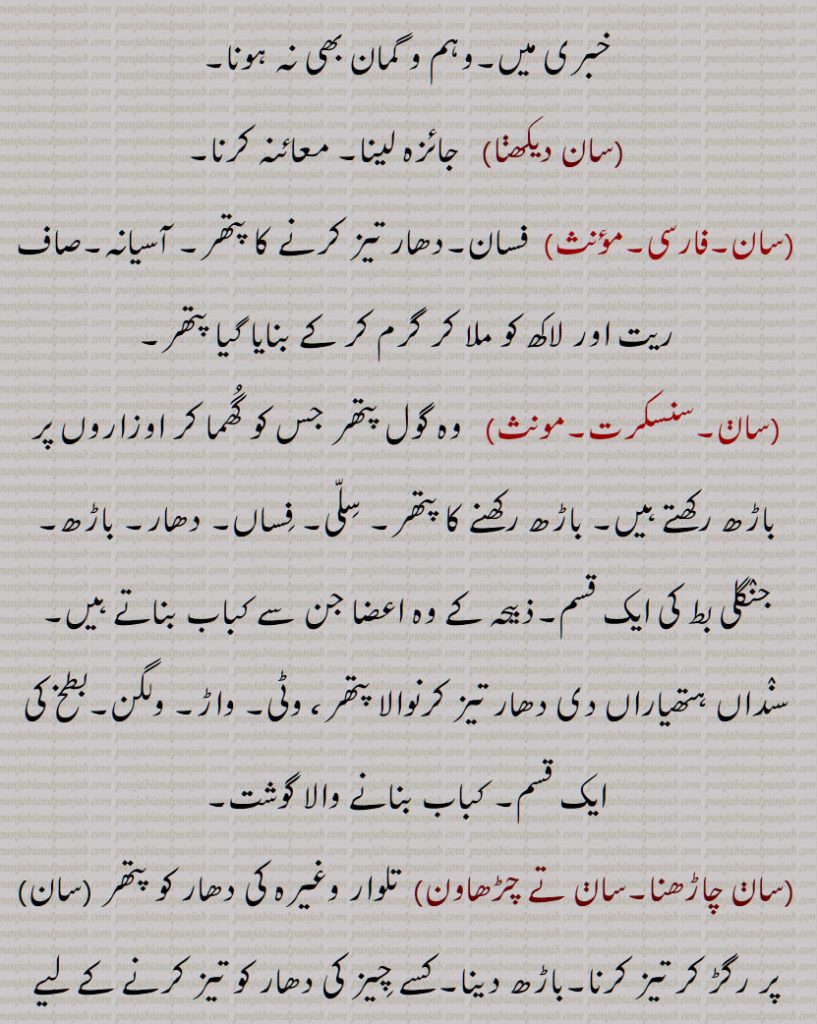 خبری میں۔وہم و گمان بھی نہ ہونا۔
(سان دیکھݨا) جائزہ لینا۔ معائنہ کرنا۔
(سان۔فارسی۔مؤنث) فسان۔دھار تیز کرنے کا پتھر۔ آسیانہ۔صاف
ریت اور لاکھ کو ملا کر گرم کر کے بنایا گیا پتھر۔
(ساݨ۔سنسکرت۔مونث) وہ گول پتھر جس کو گُھما کر اوزاروں پر
باڑھ رکھتے ہیں۔ باڑھ رکھنے کا پتھر۔ سِلّی۔ فِساں۔ دھار۔ باڑھ۔
جن٘گلی بط کی ایک قسم۔ذبیحہ کے وہ اعضا جن سے کباب بناتے ہیں۔
سن٘داں ہتھیاراں دی دھار تیز کرنوالا پتھر، وٹی۔ واڑ۔ ولگن۔بطخ کی
ایک قسم۔ کباب بنانے والا گوشت۔
(ساݨ چاڑھنا۔ساݨ تے چڑھاون) تلوار وغیرہ کی دھار کو پتھر (سان)
پر رگڑ کر تیز کرنا۔باڑھ دینا۔کسے چِیز کی دھار کو تیز کرنے کے لیے